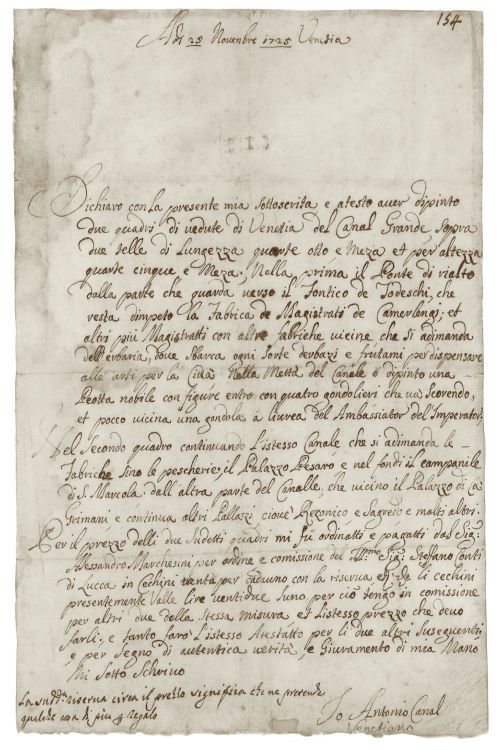 154
Adi 25 Novembre 1725 Venetia
Dichiaro con la presente mia sottoscrita e atesto aver dipinto
due quadri di vedute di Venetia del Canal Grande sopra
due telle di Lungezza quarte otto e Meza et per altezza
quarte cinque e Meza, Nella prima il Ponte di rialto
dalla parte che guarda verso il Fontico de Todeschi, che
resta dimpeto la Fabrica de Magistrati de Camerlengi, et
altri più Magistratti con altre fabriche vicine che si adimanda
dell'erbaria, dove sbarca ogni sorte derbazi e frutami per dispensare
alle arti per la Cità nella Mettà del Canale ò dipinto una
Peotta nobile con figure entro con quatro gondolieri che và scorendo,
et pocco vicina una gondola à livrea del Ambassiator del Imperator.
Nel Secondo quadro continuando Listesso Canale che si adimanda le
Fabriche sino le pescherie, il Palazzo Pesaro e nel fondi il campanile
di S. Marcola dall'altra parte del Canalle, che vicino il Palazzo di cà
Grimani e continua altri Pallazi cioue Rezonico e Sagredo e molti altri.
Per il prezzo delli due Sudetti quadri mi fù ordinatti e pagatti dal Sig.
Alessandro Marchesini per ordine e comissione del Ill.mo Sig. Stefano Conti
di Lucca in Cechini trenta per caduno con la riserva li cechini
presentemente valle lire ventidue l'uno per ciò tengo in comissione
per altri due della stessa misura et Listesso prezzo che devo
farli, e tanto farò L'istesso Atestatto per li due altri Suseguenti
e per Segno di autentica verità, e Giuramento di mia Mano
Mi Sotto Schrivo
La sud.ta riserva circa il prezzo significa che ne pretende
qualche cosa di piu regalo
Io Antonio Canal
Venetiano